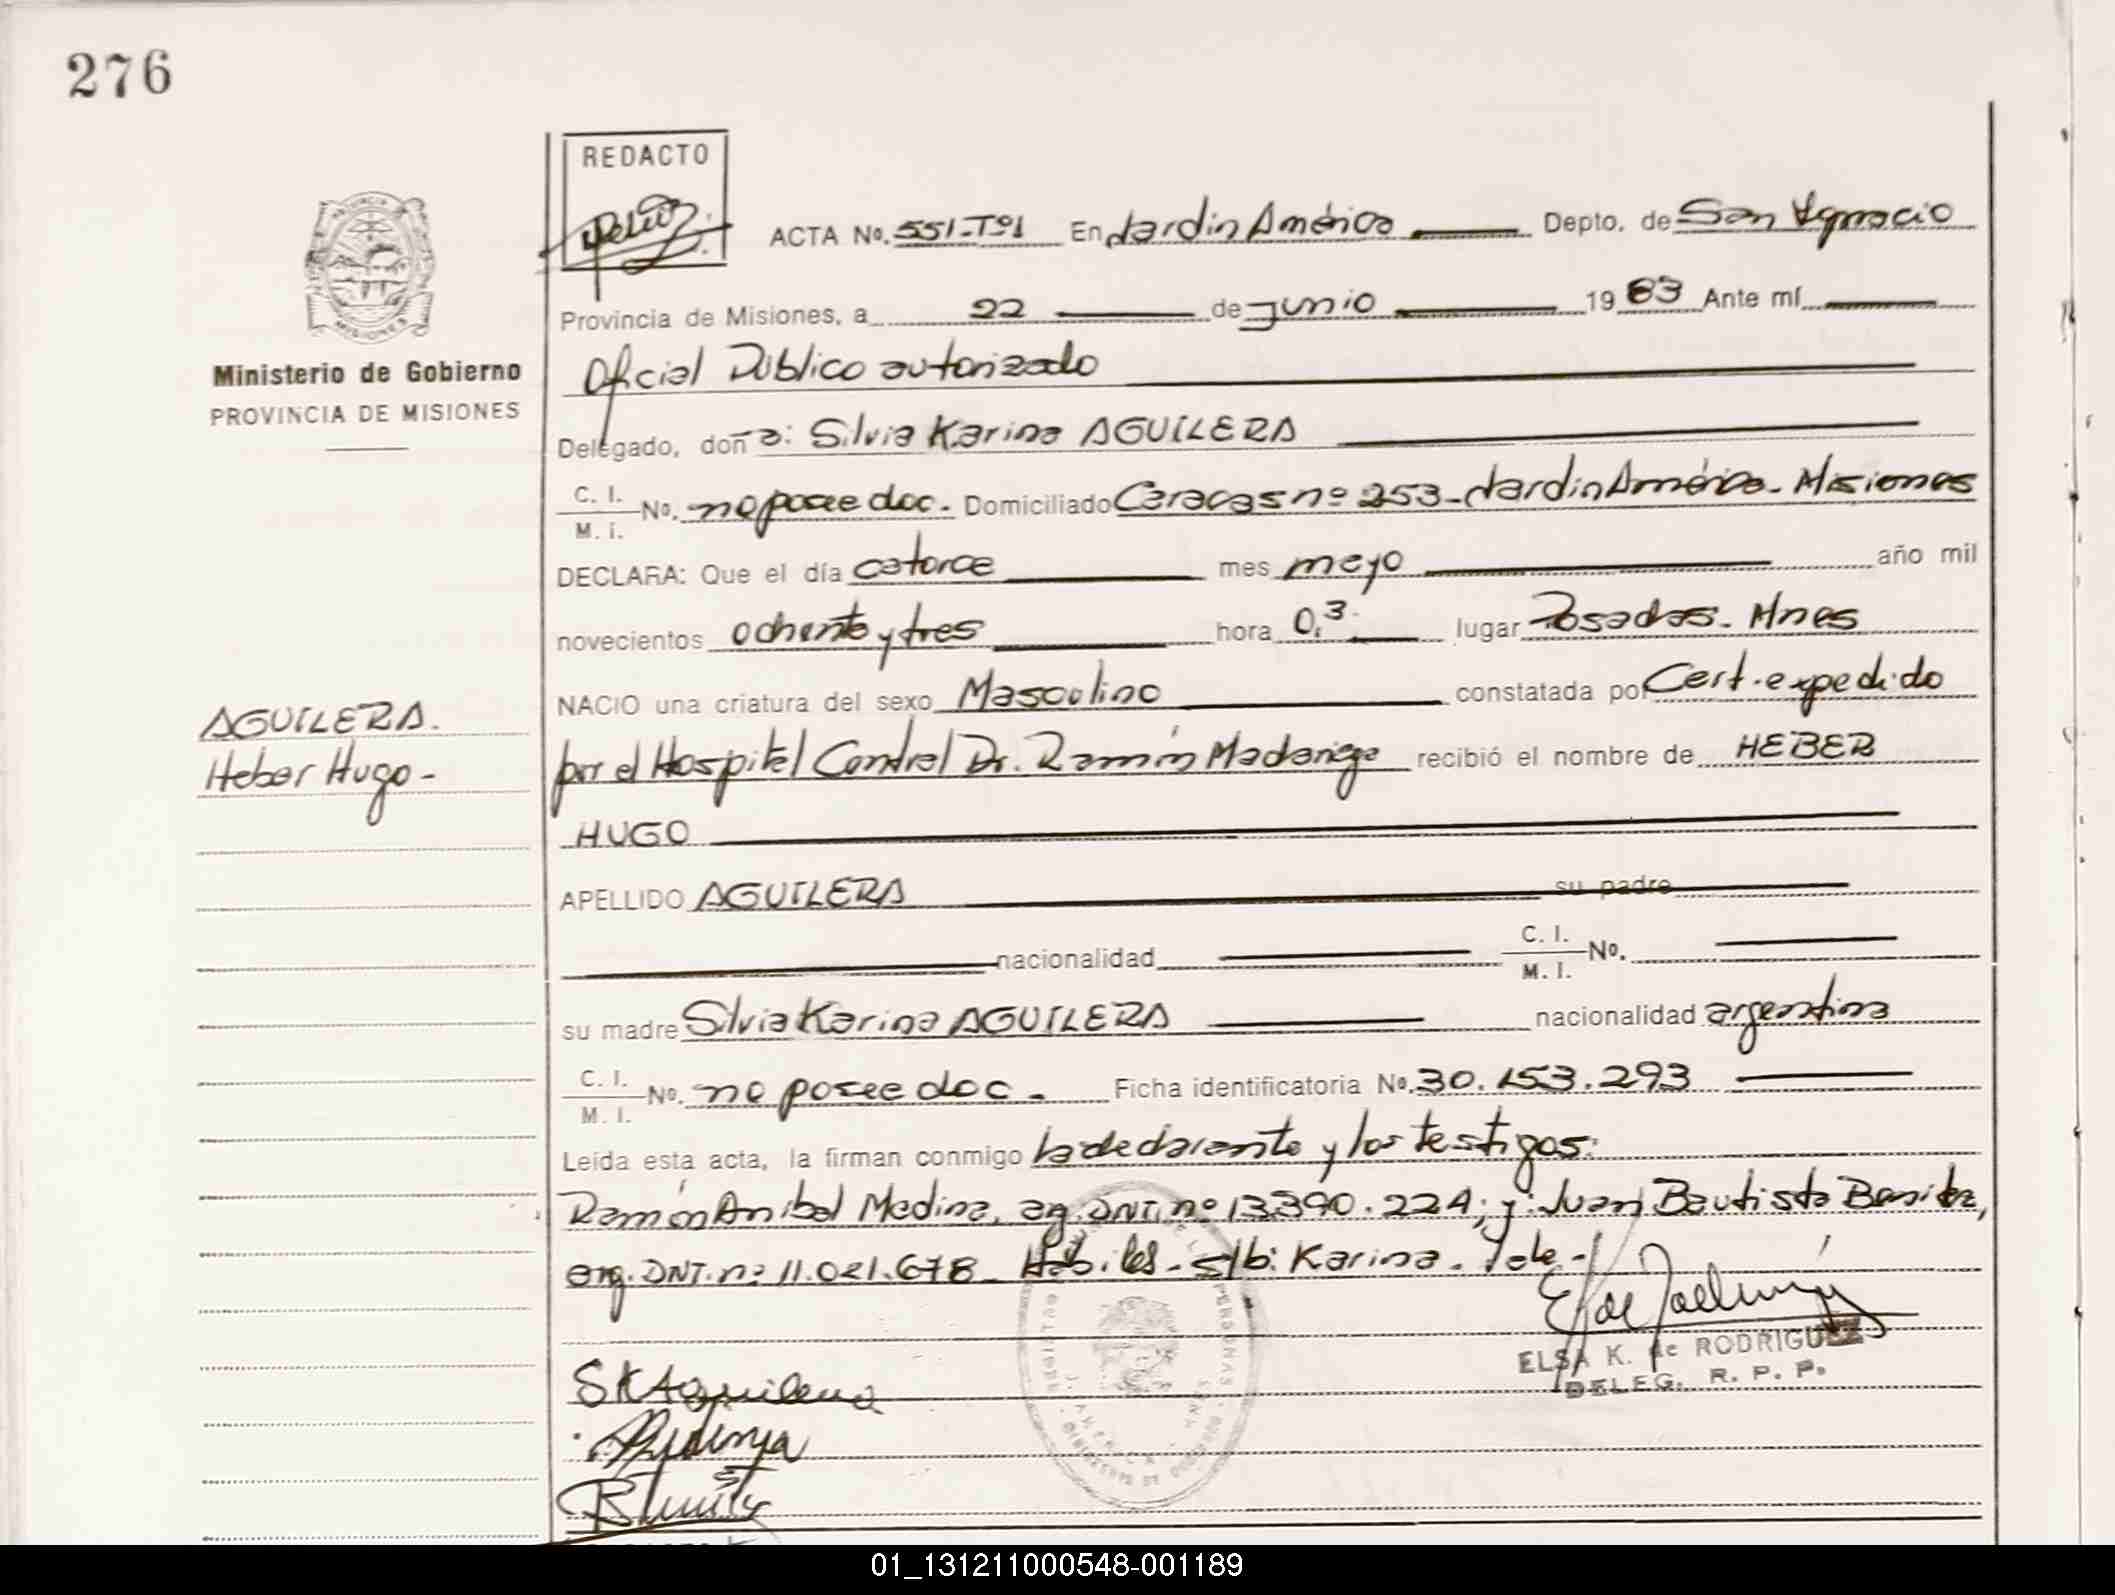 276
REDACTO
ACTA No. 551-Tº1 En Jardin América Depto. de San Ignacio
Provincia de Misiones, a 22 de junio 1983 Ante mí
Ministerio de Gobierno
PROVINCIA DE MISIONES
Oficial Público autorizado
Delegado, doña: Silvia Karina AGUILERA
C. I.
M. I. No. no posee doc. Domiciliado Caracas nº 253 - Jardin América - Misiones
DECLARA: Que el día catorce mes mayo año mil
novecientos ochenta y tres hora 0,3 lugar Posadas. Mnes
NACIO una criatura del sexo Masculino constatada por Cert. expedido
AGUILERA.
Heber Hugo -
por el Hospital Central Dr. Ramón Madariaga recibió el nombre de HEBER
HUGO
APELLIDO AGUILERA su padre
nacionalidad C. I.
M. I. No.
su madre Silvia Karina AGUILERA nacionalidad argentina
C. I.
M. I. No. no posee doc. - Ficha identificatoria No. 30.153.293
Leida esta acta, la firman conmigo la declarante y los testigos:
Ramón Anibal Medina, ag. DNI. nº 13.390.224; y: Juan Bautista Benitez,
arg. DNI. nº 11.021.678 - Hábiles - s/b: Karina. Vale -
ELSA K. de RODRIGUEZ
DELEG. R. P. P.
SKAguilera
01_131211000548-001189